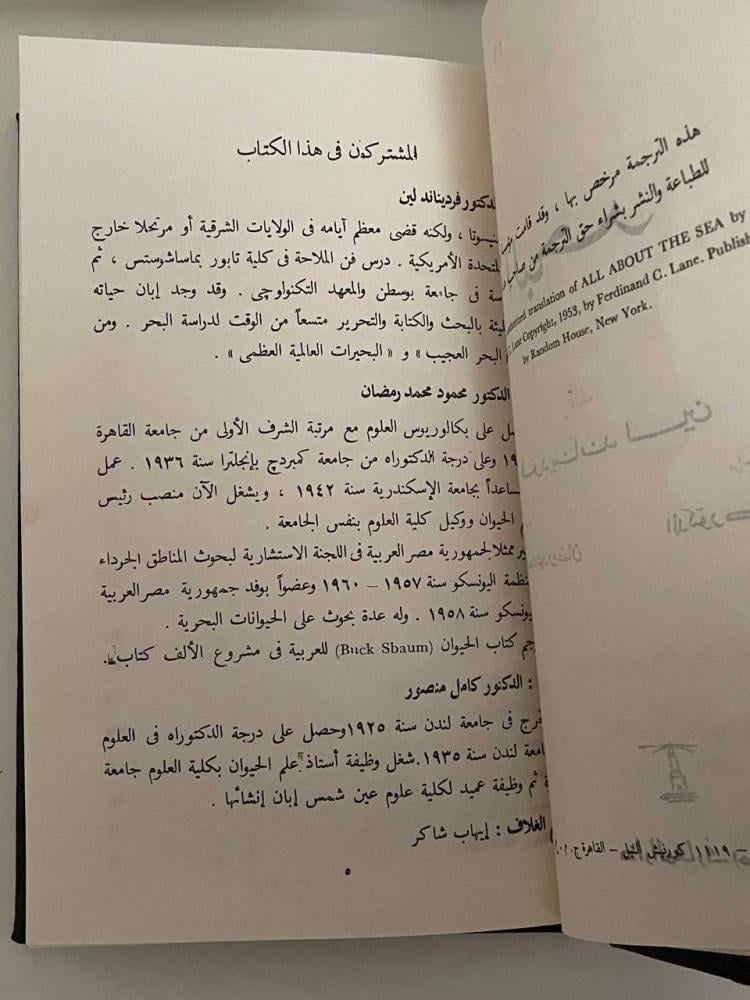 هذه الترجمة مرخص بها ، وقد قامت
للطباعة والنشر بشراء حق الترجمة من صاحب
translation of ALL ABOUT THE SEA by
Copyright, 1953, by Ferdinand C. Lane. Publish
by Random House, New York.
١١١٩ كورنيش النيل – القاهرة ج.
المشتركون فى هذا الكتاب
الدكتور فرديناند لين
، ولكنه قضى معظم أيامه فى الولايات الشرقية أو مرتحلا خارج
الأمريكية . درس فن الملاحة فى كلية تابور بماساشوستس ، ثم
فى جامعة بوسطن والمعهد التكنولوچى . وقد وجد إبان حياته
بالبحث والكتابة والتحرير متسعاً من الوقت لدراسة البحر . ومن
البحر العجيب » و « البحيرات العالمية العظمى » .
الدكتور محمود محمد رمضان
على بكالوريوس العلوم مع مرتبة الشرف الأولى من جامعة القاهرة
وعلى درجة الدكتوراه من جامعة كمبردچ بإنجلترا سنة ١٩٣٦ . عمل
بجامعة الإسكندرية سنة ١٩٤٢ ، ويشغل الآن منصب رئيس
الحيوان ووكيل كلية العلوم بنفس الجامعة .
ممثلا لجمهورية مصر العربية فى اللجنة الاستشارية لبحوث المناطق الجرداء
اليونسكو سنة ١٩٥٧ – ١٩٦٠ وعضواً بوفد جمهورية مصر العربية
سنة ١٩٥٨ . وله عدة بحوث على الحيوانات البحرية .
كتاب الحيوان (Buck Sbaum) للعربية فى مشروع الألف كتاب .
: الدكتور كامل منصور
فى جامعة لندن سنة ١٩٢٥ وحصل على درجة الدكتوراه فى العلوم
لندن سنة ١٩٣٥. شغل وظيفة أستاذ علم الحيوان بكلية العلوم جامعة
ثم وظيفة عميد لكلية علوم عين شمس إبان إنشائها .
الغلاف : إيهاب شاكر
٥